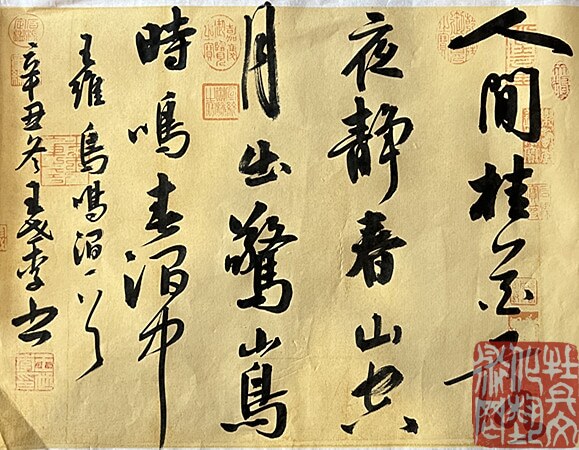 人間桂花落
夜静春山空
月出驚山鳥
時鳴春澗中
王維鳥鳴澗一首
辛丑冬王李书